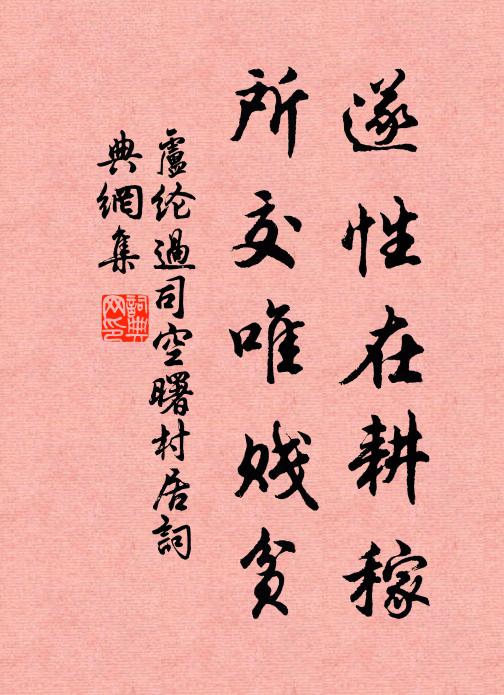 遂性在耕稼
所交唯贱贫
盧纶過司空曙村居詞
典網集
詞典网印